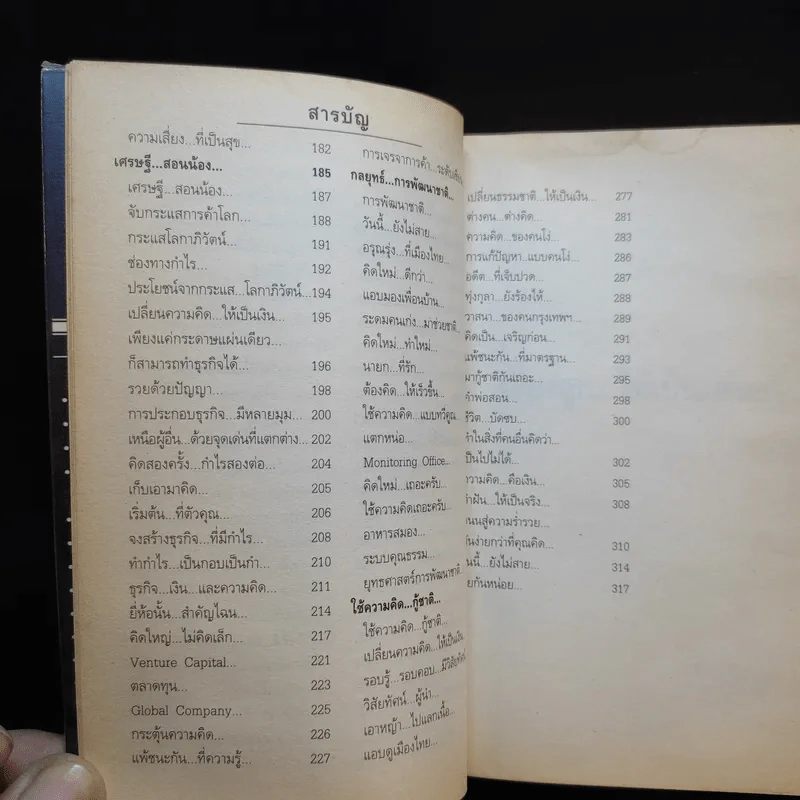 สารบัญ
ความเสี่ยง...ที่เป็นสุข... 182
เศรษฐี...สอนน้อง... 185
เศรษฐี...สอนน้อง... 187
จับกระแสการค้าโลก... 188
กระแสโลกาภิวัตน์... 191
ช่องทางกำไร... 192
ประโยชน์จากกระแส...โลกาภิวัตน์... 194
เปลี่ยนความคิด...ให้เป็นเงิน... 195
เพียงแค่กระดาษแผ่นเดียว...
ก็สามารถทำธุรกิจได้... 196
รวยด้วยปัญญา... 198
การประกอบธุรกิจ...มีหลายมุม... 200
เหนือผู้อื่น...ด้วยจุดเด่นที่แตกต่าง... 202
คิดสองครั้ง...กำไรสองต่อ... 204
เก็บเอามาคิด... 205
เริ่มต้น...ที่ตัวคุณ... 206
จงสร้างธุรกิจ...ที่มีกำไร... 208
ทำกำไร...เป็นกอบเป็นกำ... 210
ธุรกิจ...เงิน...และความคิด... 211
ยี่ห้อนั้น...สำคัญไฉน... 214
คิดใหญ่...ไม่คิดเล็ก... 217
Venture Capital... 221
ตลาดทุน... 223
Global Company... 225
กระตุ้นความคิด... 226
แพ้ชนะกัน...ที่ความรู้... 227
การเจรจาการค้า...ระดับ
กลยุทธ์...การพัฒนาชาติ...
การพัฒนาชาติ...
วันนี้...ยังไม่สาย...
อรุณรุ่ง...ที่เมืองไทย...
คิดใหม่...ดีกว่า...
แอบมองเพื่อนบ้าน...
ระดมคนเก่ง...มาช่วยชาติ...
คิดใหม่...ทำใหม่...
นายก...ที่รัก...
ต้องคิด...ให้เร็วขึ้น...
ใช้ความคิด...แบบทวีคูณ...
แตกหน่อ...
Monitoring Office...
คิดใหม่...เถอะครับ...
ใช้ความคิดเถอะครับ...
อาหารสมอง...
ระบบคุณธรรม...
ยุทธศาสตร์การพัฒนาชาติ...
ใช้ความคิด...กู้ชาติ...
ใช้ความคิด...กู้ชาติ...
เปลี่ยนความคิด...ให้เป็นเงิน
รอบรู้...รอบคอบ...มีวิสัยทัศน์
วิสัยทัศน์...ผู้นำ...
เอาหญ้า...ไปแลกเนื้อ...
แอบดูเมืองไทย...
เปลี่ยนธรรมชาติ...ให้เป็นเงิน... 277
ต่างคน...ต่างคิด... 281
ความคิด...ของคนโง่... 283
การแก้ปัญหา...แบบคนโง่... 286
อดีต...ที่เจ็บปวด... 287
ทุ่งกุลา...ยังร้องไห้... 288
วาสนา...ของคนกรุงเทพฯ... 289
คิดเป็น...เจริญก่อน... 291
แพ้ชนะกัน...ที่มาตรฐาน... 293
มากู้ชาติกันเถอะ... 295
คำพ่อสอน... 298
ชีวิต...บัดซบ... 300
ทำในสิ่งที่คนอื่นคิดว่า...
เป็นไปไม่ได้... 302
ความคิด...คือเงิน... 305
ทำฝัน...ให้เป็นจริง... 308
ถนนสู่ความร่ำรวย...
ง่ายกว่าที่คุณคิด... 310
วันนี้...ยังไม่สาย... 314
กันหน่อย... 317